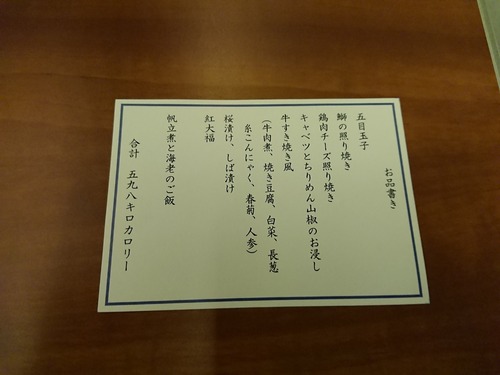 お品書き
五目玉子
鰤の照り焼き
鶏肉チーズ照り焼き
キャベツとちりめん山椒のお浸し
牛すき焼き風
（牛肉煮、焼き豆腐、白菜、長葱
糸こんにゃく、春菊、人参）
桜漬け、しば漬け
紅大福
帆立煮と海老のご飯
合計　五九八キロカロリー